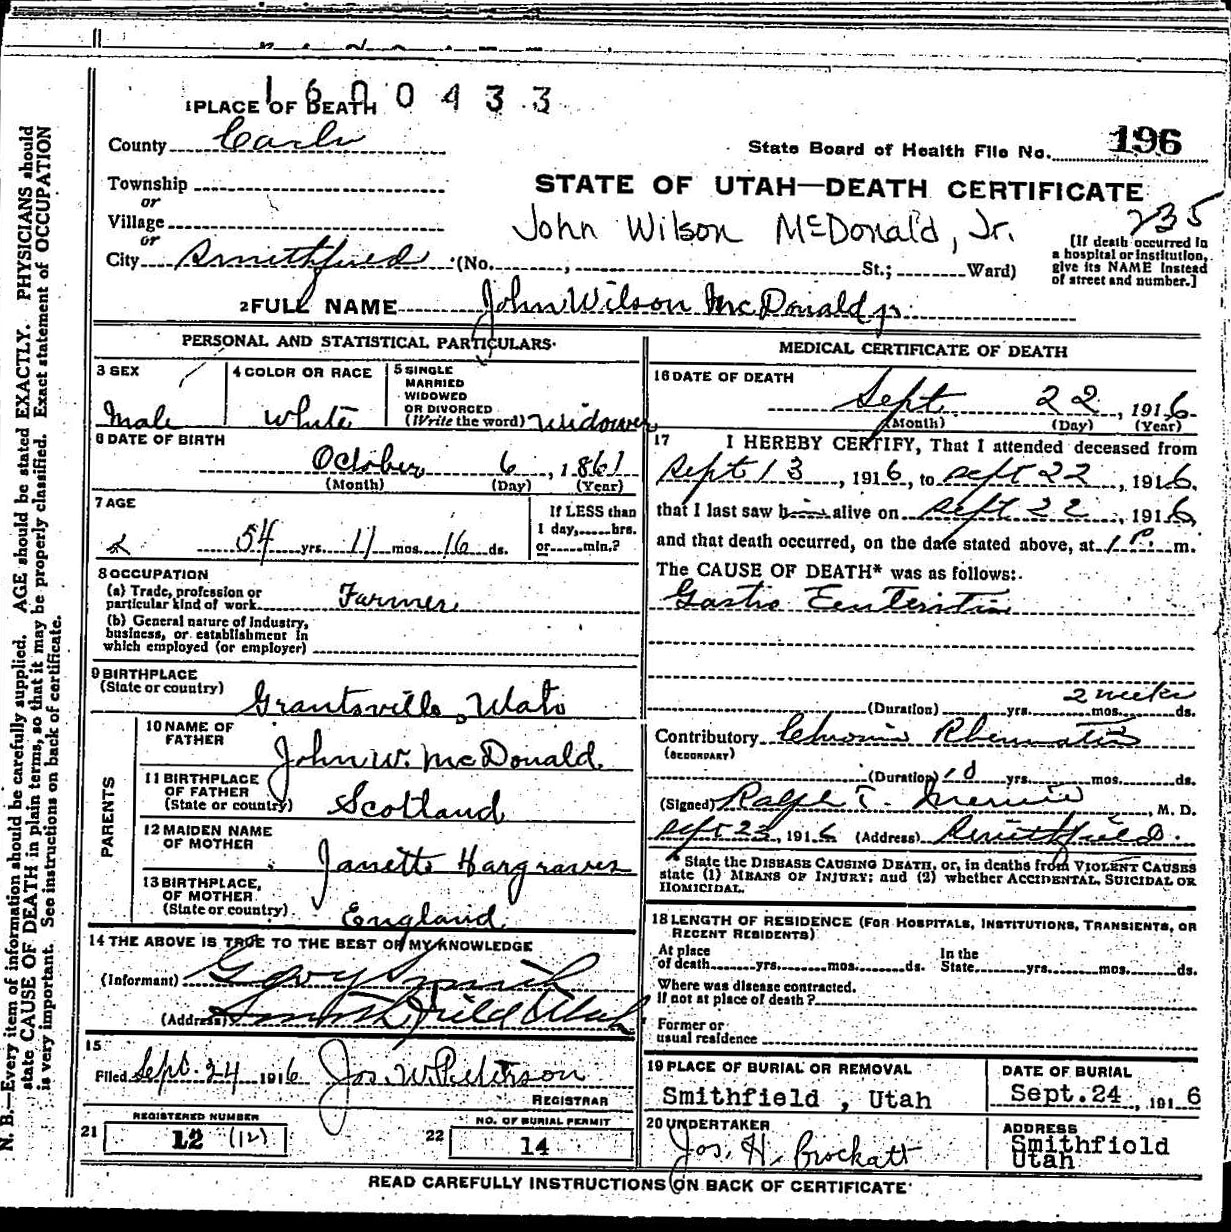 1600433
1 PLACE OF DEATH
County Cache
State Board of Health File No. 196
Township
or
Village
or
City Smithfield (No. , St.; Ward)
STATE OF UTAH—DEATH CERTIFICATE
235
John Wilson McDonald, Jr.
[If death occurred in
a hospital or institution,
give its NAME instead
of street and number.]
2 FULL NAME John Wilson McDonald jr.
PERSONAL AND STATISTICAL PARTICULARS
3 SEX
Male
4 COLOR OR RACE
White
5 SINGLE
MARRIED
WIDOWED
OR DIVORCED
(Write the word) Widower
6 DATE OF BIRTH
October 6, 1861
(Month) (Day) (Year)
7 AGE
54 yrs. 11 mos. 16 ds.
If LESS than
1 day, hrs.
or min.?
8 OCCUPATION
(a) Trade, profession or
particular kind of work Farmer
(b) General nature of Industry,
business, or establishment in
which employed (or employer)
9 BIRTHPLACE
(State or country) Grantsville, Utah
PARENTS
10 NAME OF
FATHER John W. McDonald.
11 BIRTHPLACE
OF FATHER
(State or country) Scotland
12 MAIDEN NAME
OF MOTHER Janette Hargraves
13 BIRTHPLACE,
OF MOTHER
(State or country) England
14 THE ABOVE IS TRUE TO THE BEST OF MY KNOWLEDGE
(Informant) Smith
(Address) Smithfield Utah
15
Filed Sept. 24 1916 Jos. W. Peterson
REGISTRAR
REGISTERED NUMBER
21 12 (12)
NO. OF BURIAL PERMIT
22 14
MEDICAL CERTIFICATE OF DEATH
16 DATE OF DEATH
Sept. 22, 1916
(Month) (Day) (Year)
17 I HEREBY CERTIFY, That I attended deceased from
Sept 13, 1916, to Sept 22, 1916.
that I last saw him alive on Sept 22, 1916,
and that death occurred, on the date stated above, at 1 P. m.
The CAUSE OF DEATH* was as follows:
Gastro Enteritis
2 weeks
(Duration) yrs. mos. ds.
Contributory Chronic Rheumatism
(SECONDARY)
(Duration) 10 yrs. mos. ds.
(Signed) Ralph T. Merrill M. D.
Sept 23, 1916 (Address) Smithfield.
* State the DISEASE CAUSING DEATH, or, in deaths from VIOLENT CAUSES
state (1) MEANS OF INJURY; and (2) whether ACCIDENTAL, SUICIDAL OR
HOMICIDAL.
18 LENGTH OF RESIDENCE (FOR HOSPITALS, INSTITUTIONS, TRANSIENTS, OR
RECENT RESIDENTS)
At place In the
of death yrs. mos. ds. State yrs. mos. ds.
Where was disease contracted,
If not at place of death?
Former or
usual residence
19 PLACE OF BURIAL OR REMOVAL
Smithfield , Utah
DATE OF BURIAL
Sept. 24, 1916
20 UNDERTAKER
Jos. H. Brockatt
ADDRESS
Smithfield
Utah
READ CAREFULLY INSTRUCTIONS ON BACK OF CERTIFICATE
N. B.—Every item of information should be carefully supplied. AGE should be stated EXACTLY. PHYSICIANS should
state CAUSE OF DEATH in plain terms, so that it may be properly classified. Exact statement of OCCUPATION
is very important. See instructions on back of certificate.